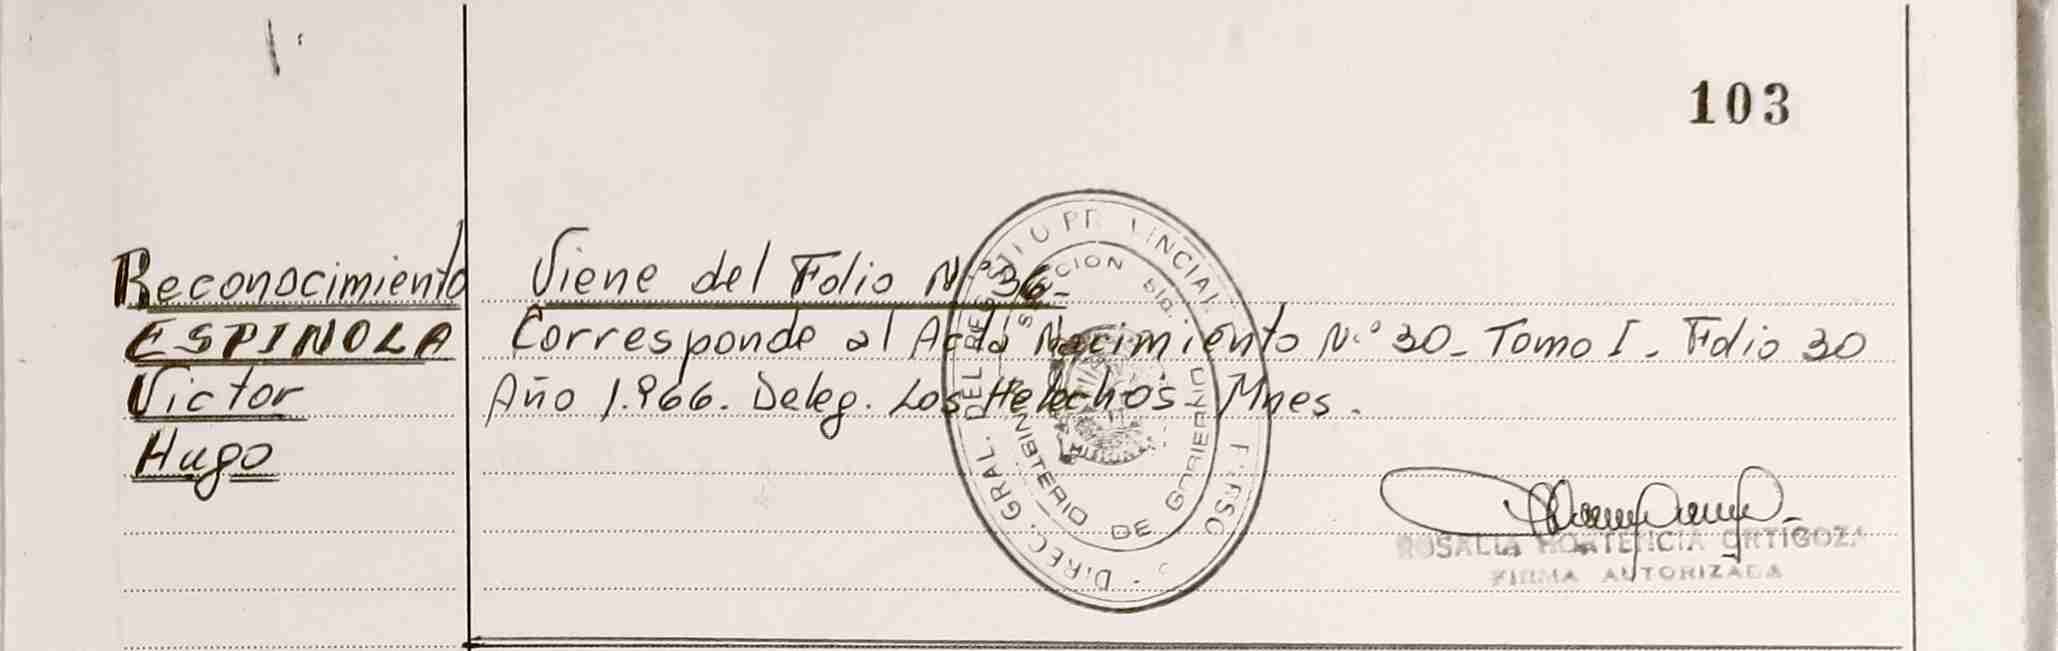 103
Reconocimiento
ESPINOLA
Victor
Hugo
Viene del Folio Nº 36-
Corresponde al Acta Nacimiento N.º 30- Tomo I. Folio 30
Año 1.966. Deleg. Los Helechos- Mnes.
DIREC. GRAL. DEL REGISTRO PROVINCIAL
MINISTERIO DE GOBIERNO
ROSALIA HORTENCIA ORTIGOZA
FIRMA AUTORIZADA